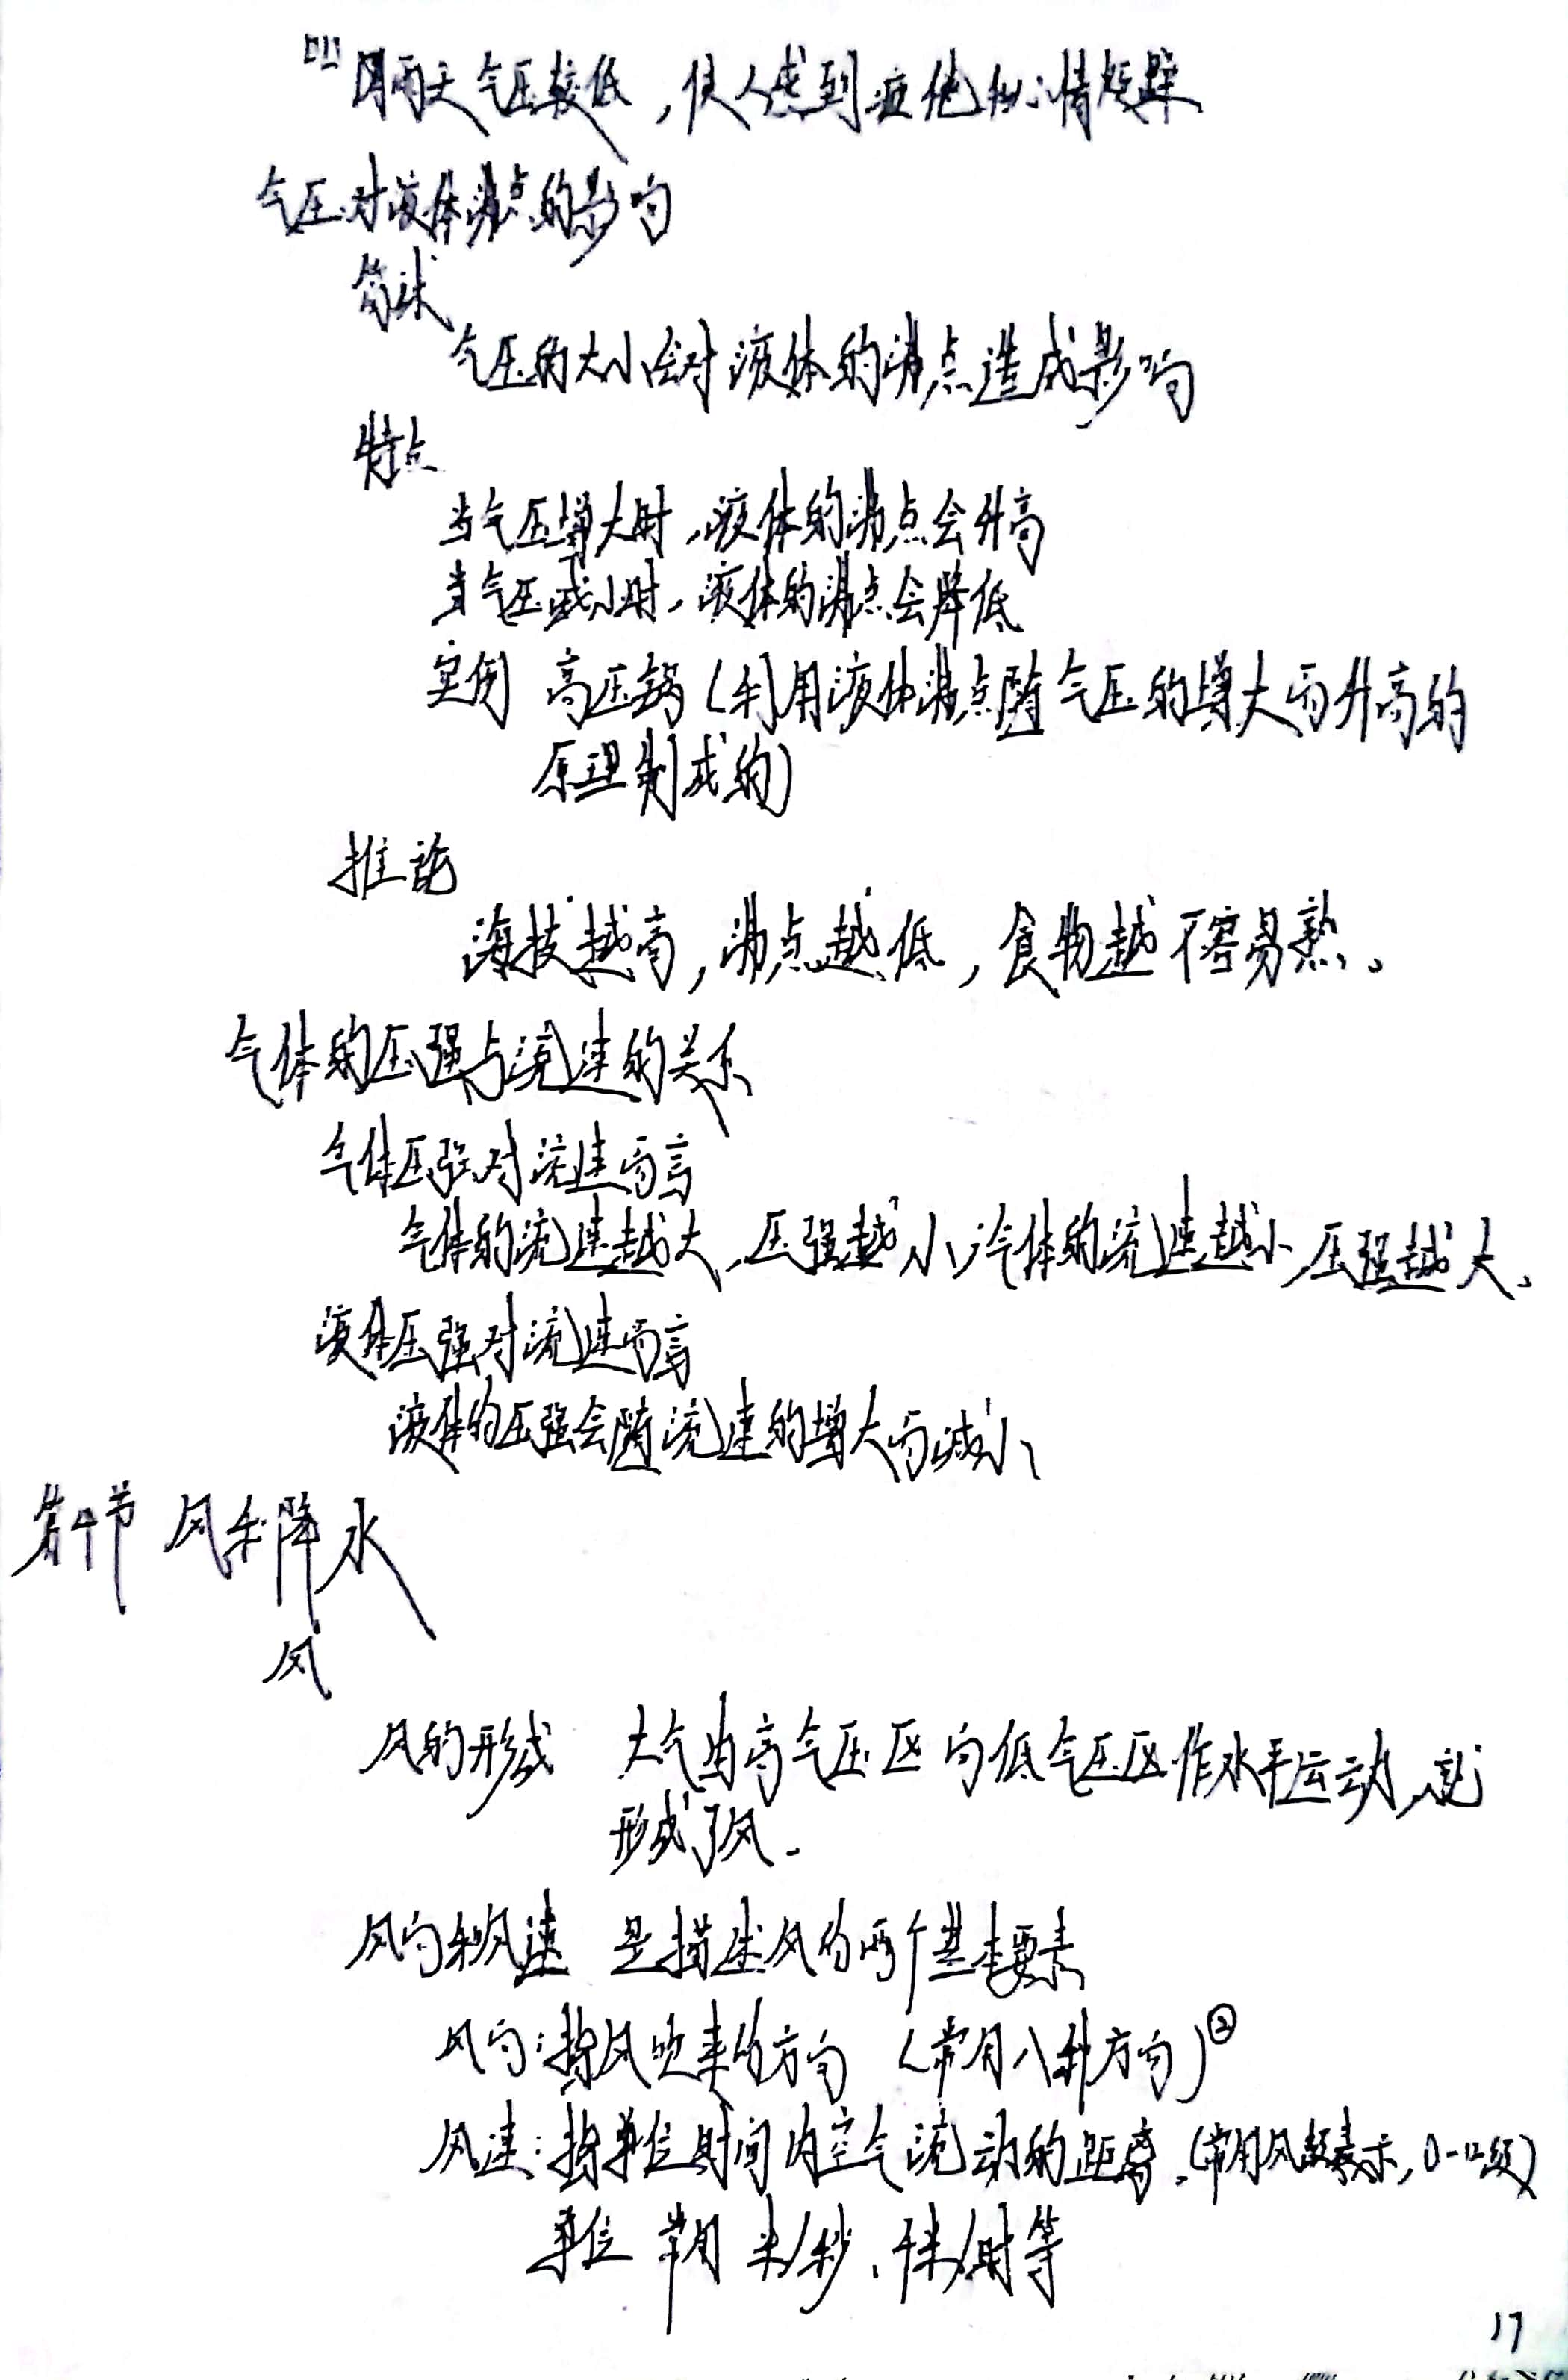 阴雨天气压较低，使人感到疲倦和心情烦躁
气压对液体沸点的影响
简述
气压的大小会对液体的沸点造成影响
特点
当气压增大时，液体的沸点会升高
当气压减小时，液体的沸点会降低
实例 高压锅（利用液体沸点随气压的增大而升高的
原理制成的）
推论
海拔越高，沸点越低，食物越不容易熟。
气体的压强与流速的关系
气体压强对流速而言
气体的流速越大，压强越小，气体的流速越小，压强越大。
液体压强对流速而言
液体的压强会随流速的增大而减小
第4节 风和降水
风
风的形成 大气由高气压区向低气压区作水平运动，就
形成了风.
风向和风速 是描述风的两个基本要素
风向：指风吹来的方向（常用八种方向）②
风速：指单位时间内空气流动的距离。（常用风级表示，0-12级）
单位 常用 米/秒、千米/时等
17